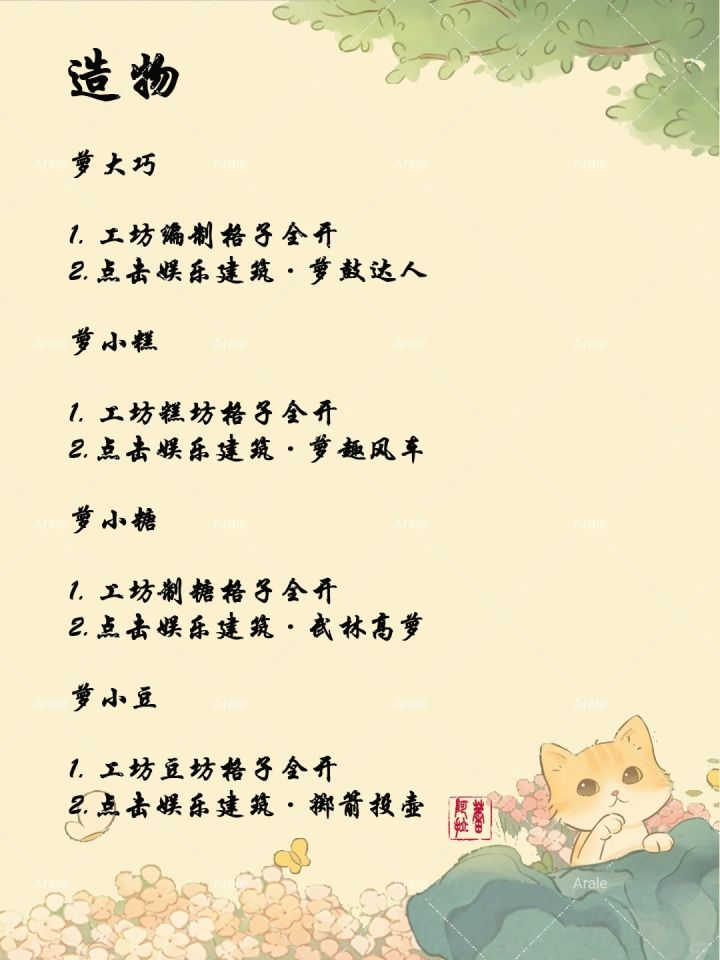 造物
萝大巧
1. 工坊编制格子全开
2.点击娱乐建筑·萝鼓达人
萝小糕
1. 工坊糕坊格子全开
2.点击娱乐建筑·萝趣风车
萝小糖
1. 工坊制糖格子全开
2.点击娱乐建筑·武林高萝
萝小豆
1. 工坊豆坊格子全开
2.点击娱乐建筑·掷箭投壶
Arale Arale Arale Arale
Arale Arale Arale Arale
Arale Arale Arale Arale
Arale Arale Arale Arale
Arale Arale Arale Arale